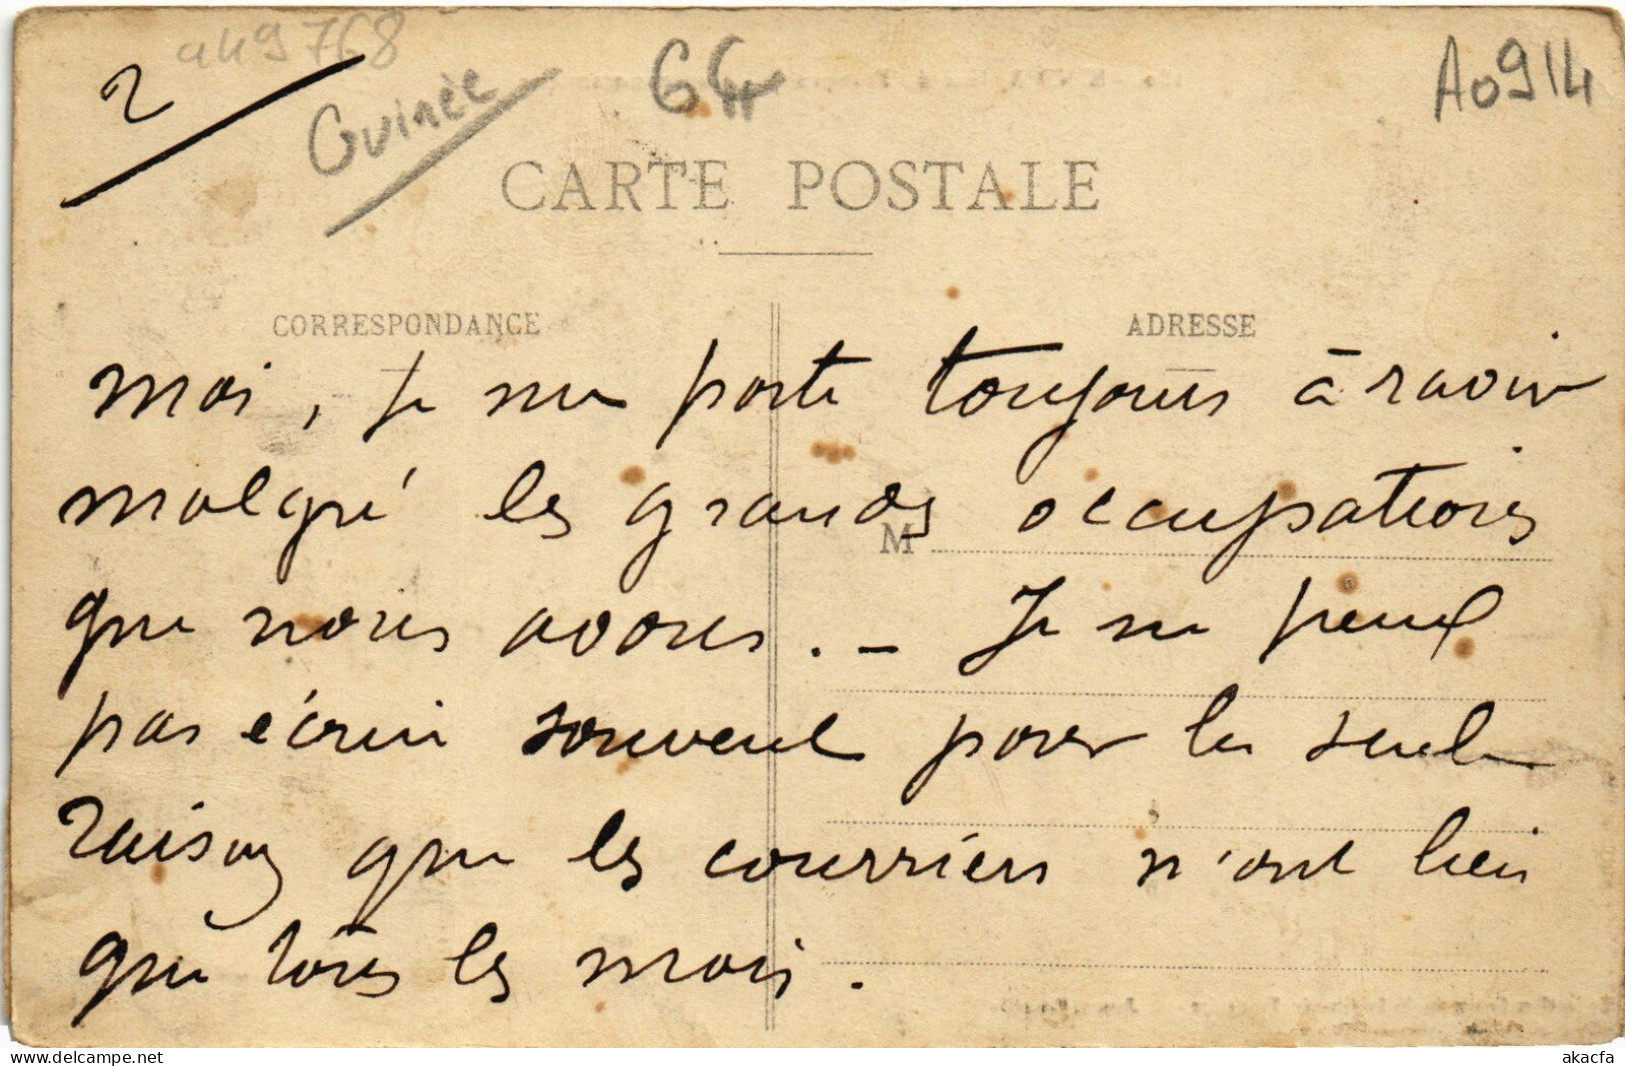 2
a49768
Guinée
A0914
CARTE POSTALE
CORRESPONDANCE
ADRESSE
moi, je me porte toujours à ravir
malgré les grandes occupations
M
que nous avons. – Je ne peux
pas écrire souvent pour la seule
raison que les courriers n'ont lieu
que tous les mois.
akacfa